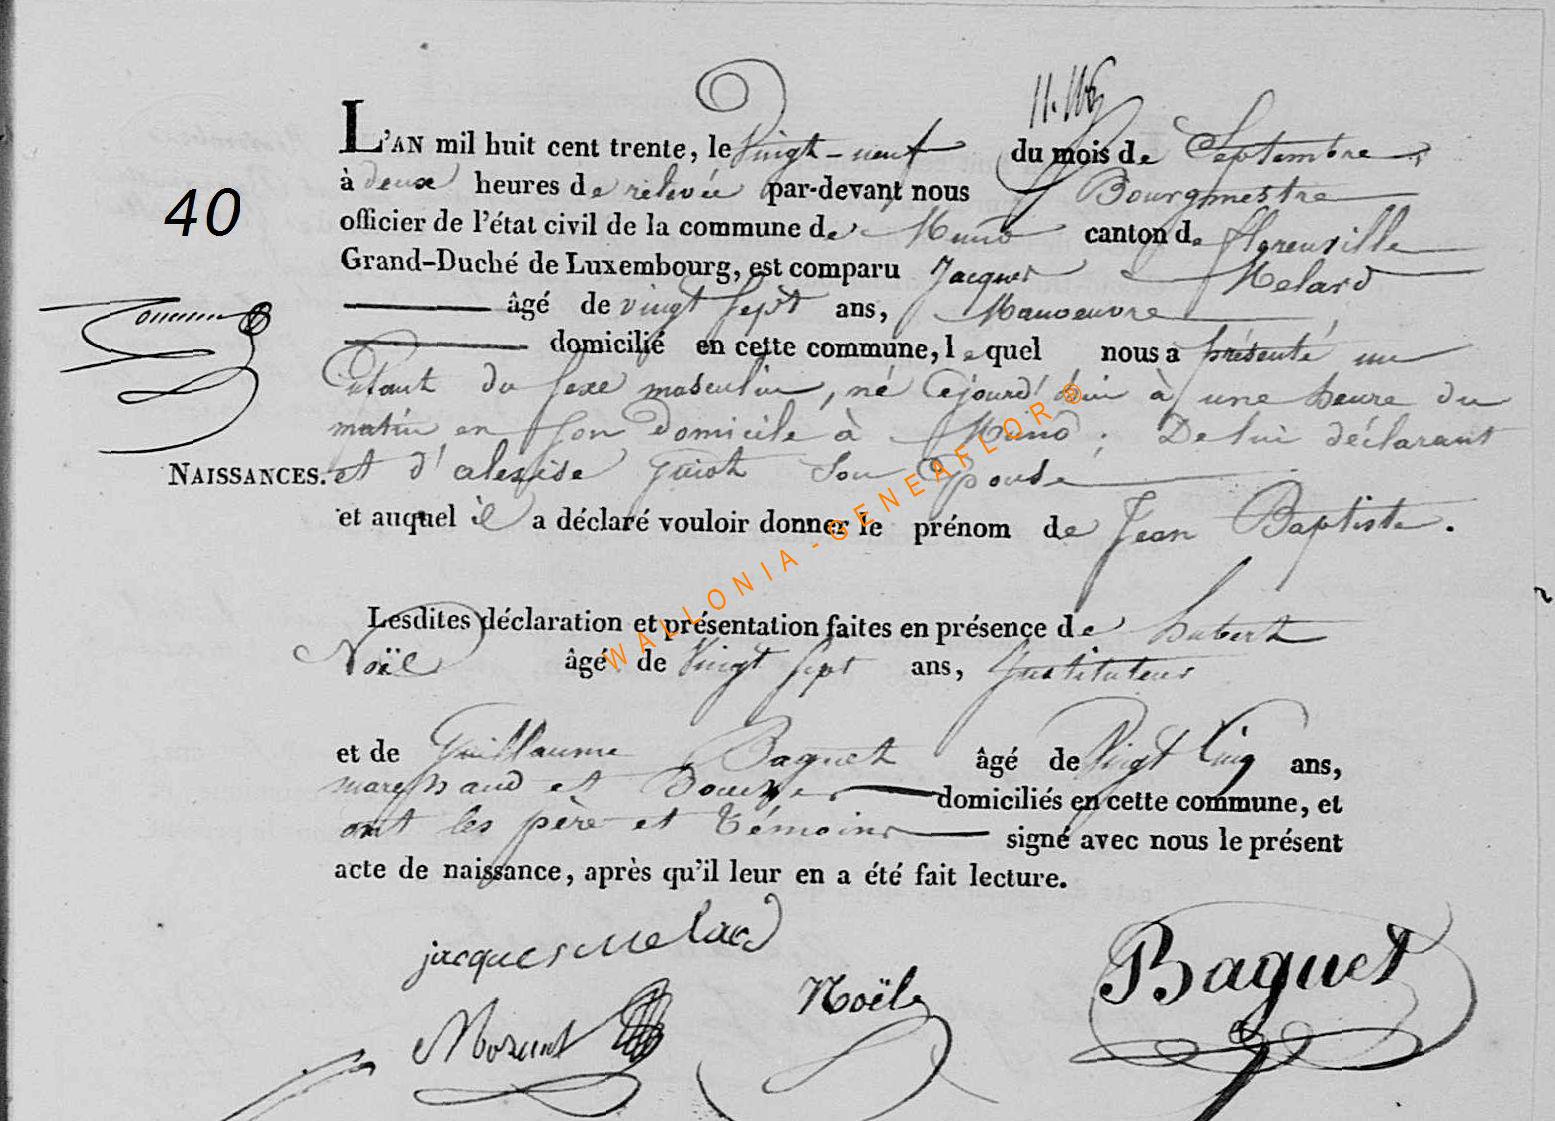 11.
L'AN mil huit cent trente, le Vingt-neuf du mois de Septembre
40
à deux heures de relevée par-devant nous Bourgmestre
officier de l'état civil de la commune de Muno canton de florenville
Grand-Duché de Luxembourg, est comparu Jacques Melard
âgé de vingt Sept ans, Manoeuvre
domicilié en cette commune, lequel nous a présenté un
Enfant du sexe masculin, né cejourd'hui à une heure du
matin en son domicile à Muno. De lui déclarant
NAISSANCES. et d' Guiot Son Epouse
et auquel il a déclaré vouloir donner le prénom de Jean Baptiste.
WALLONIA-GENEAFLOR ©
Lesdites déclaration et présentation faites en présence de hubert
Noël âgé de Vingt Sept ans, Instituteur
et de Guillaume Baguet âgé de Vingt Cinq ans,
domiciliés en cette commune, et
ont les père et témoins signé avec nous le présent
acte de naissance, après qu'il leur en a été fait lecture.
jacques Melard
Noël
Baguet